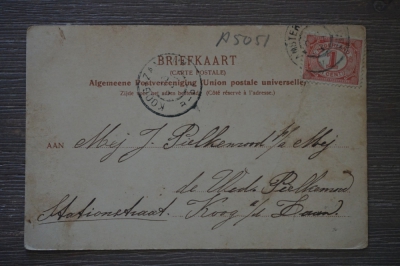 A5051
BRIEFKAART
(CARTE POSTALE)
Algemeene Postvereeniging (Union postale universelle)
Zijde voor het adres bestemd. (Côté réservé à l'adresse.)
KOOG-ZA
1
CENT
AAN Mej J. Pielkenrood p/a Mej
de Weds Pielkenrood
Stationstraat. Koog a/d Zaan